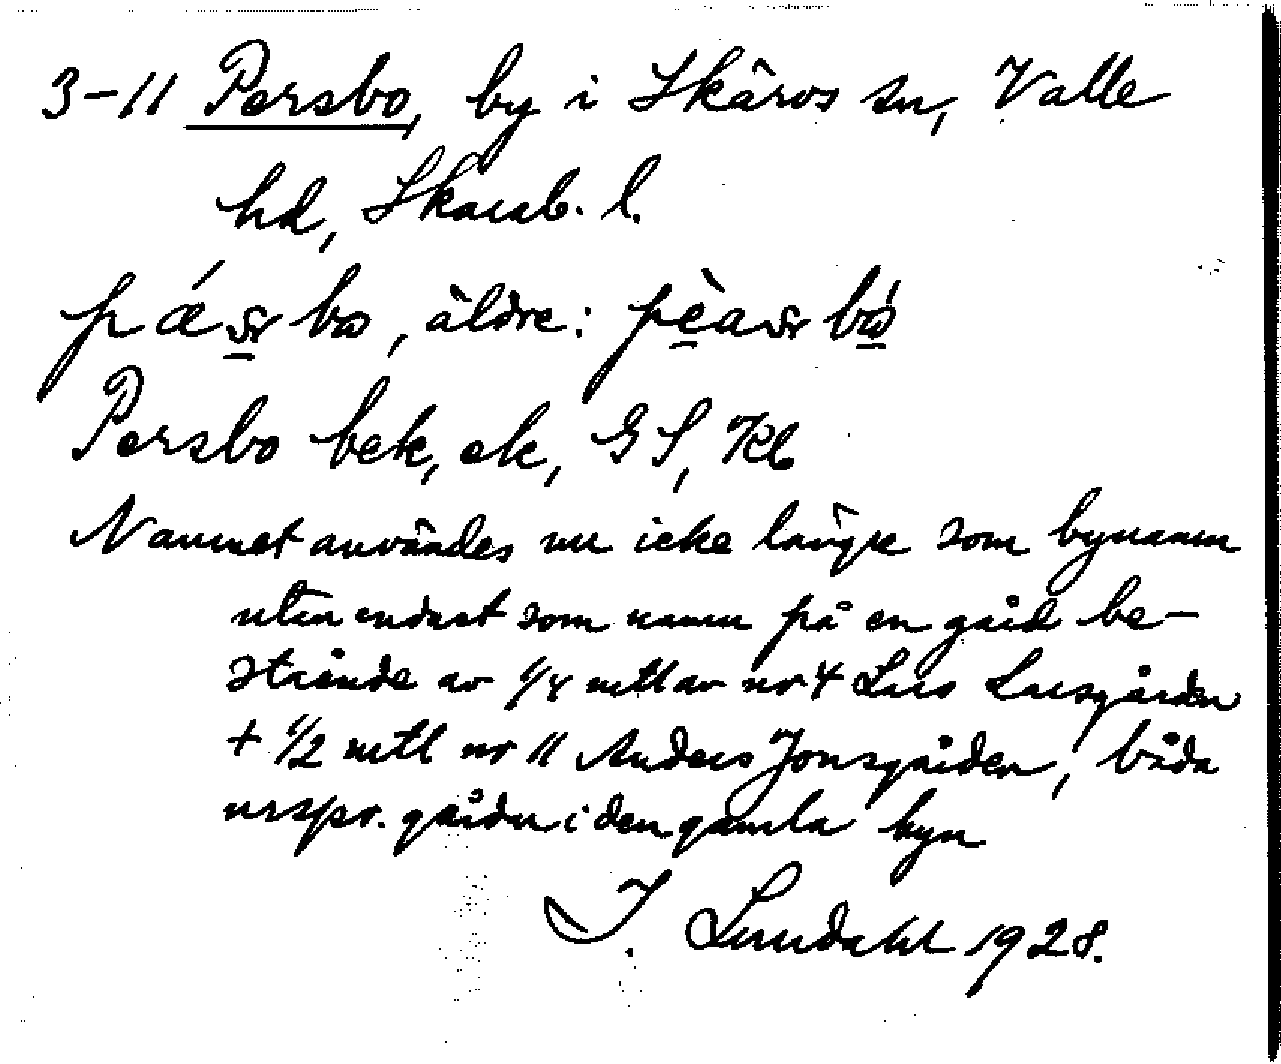 3-11 Persbo, by i Skärvs sn, Valle
hd, Skarab. l.
bo, äldre:
Persbo bek, ek, GS, Kb
Namnet användes nu icke längre som bynamn
utan endast som namn på en gård be-
stående av 1/8 mtl av nr 4 Lars Larsgården
+ 1/2 mtl nr 11 Anders Jonsgården, båda
urspr. gårdar i den gamla byn
I. Lundahl 1928.